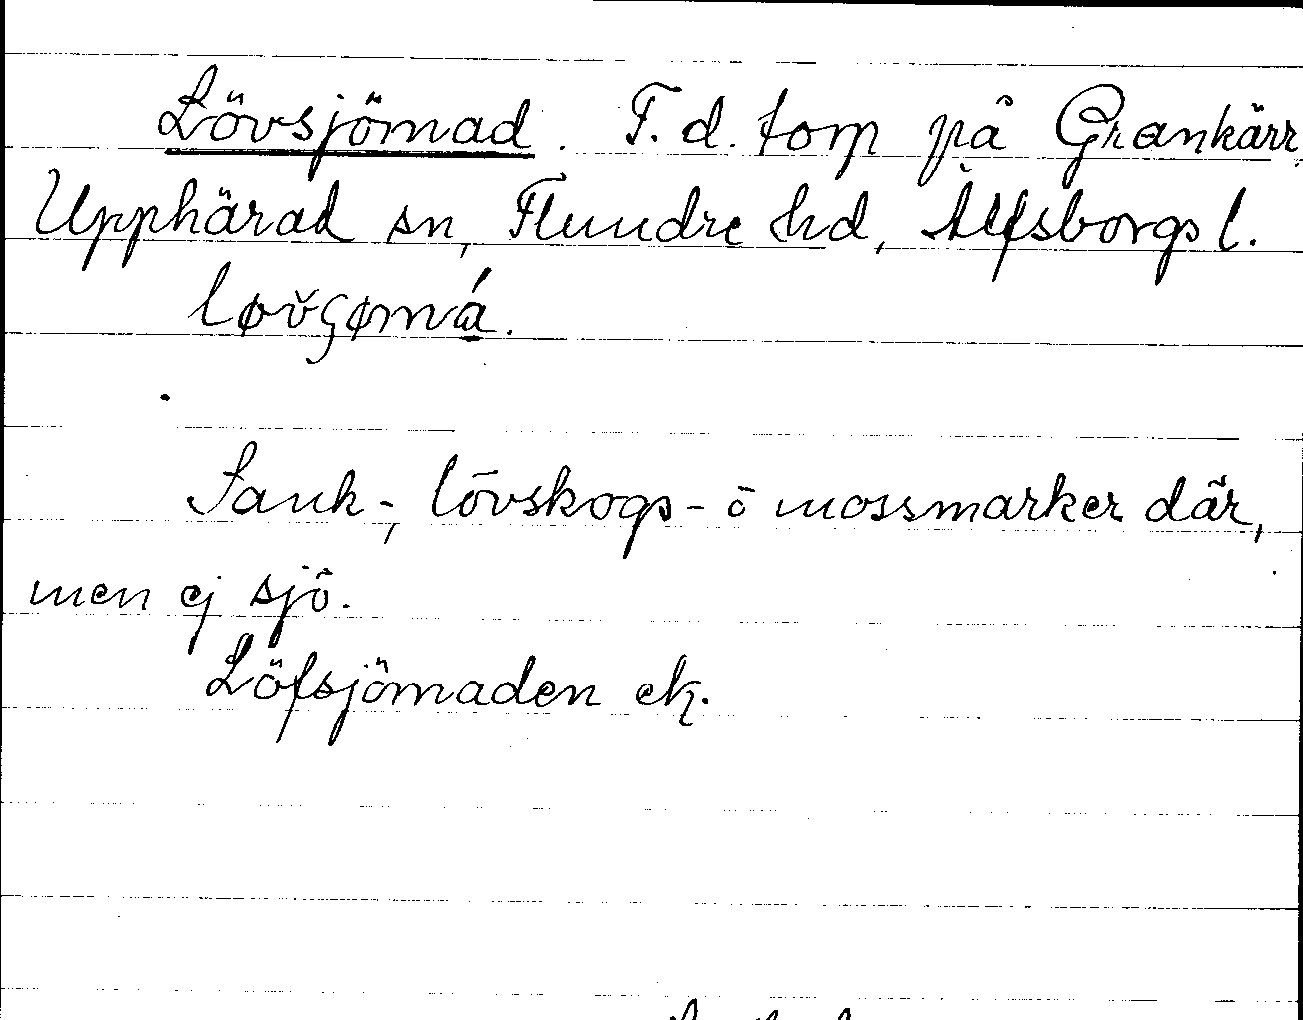 Lövsjömad. F.d. torp på Grankärr,
Upphärad sn, Flundre hd, Älfsborgs l.
løv̌ʂømá.
Sank-, lövskogs- ō mossmarker där,
men ej sjö.
Löfsjömaden ek.